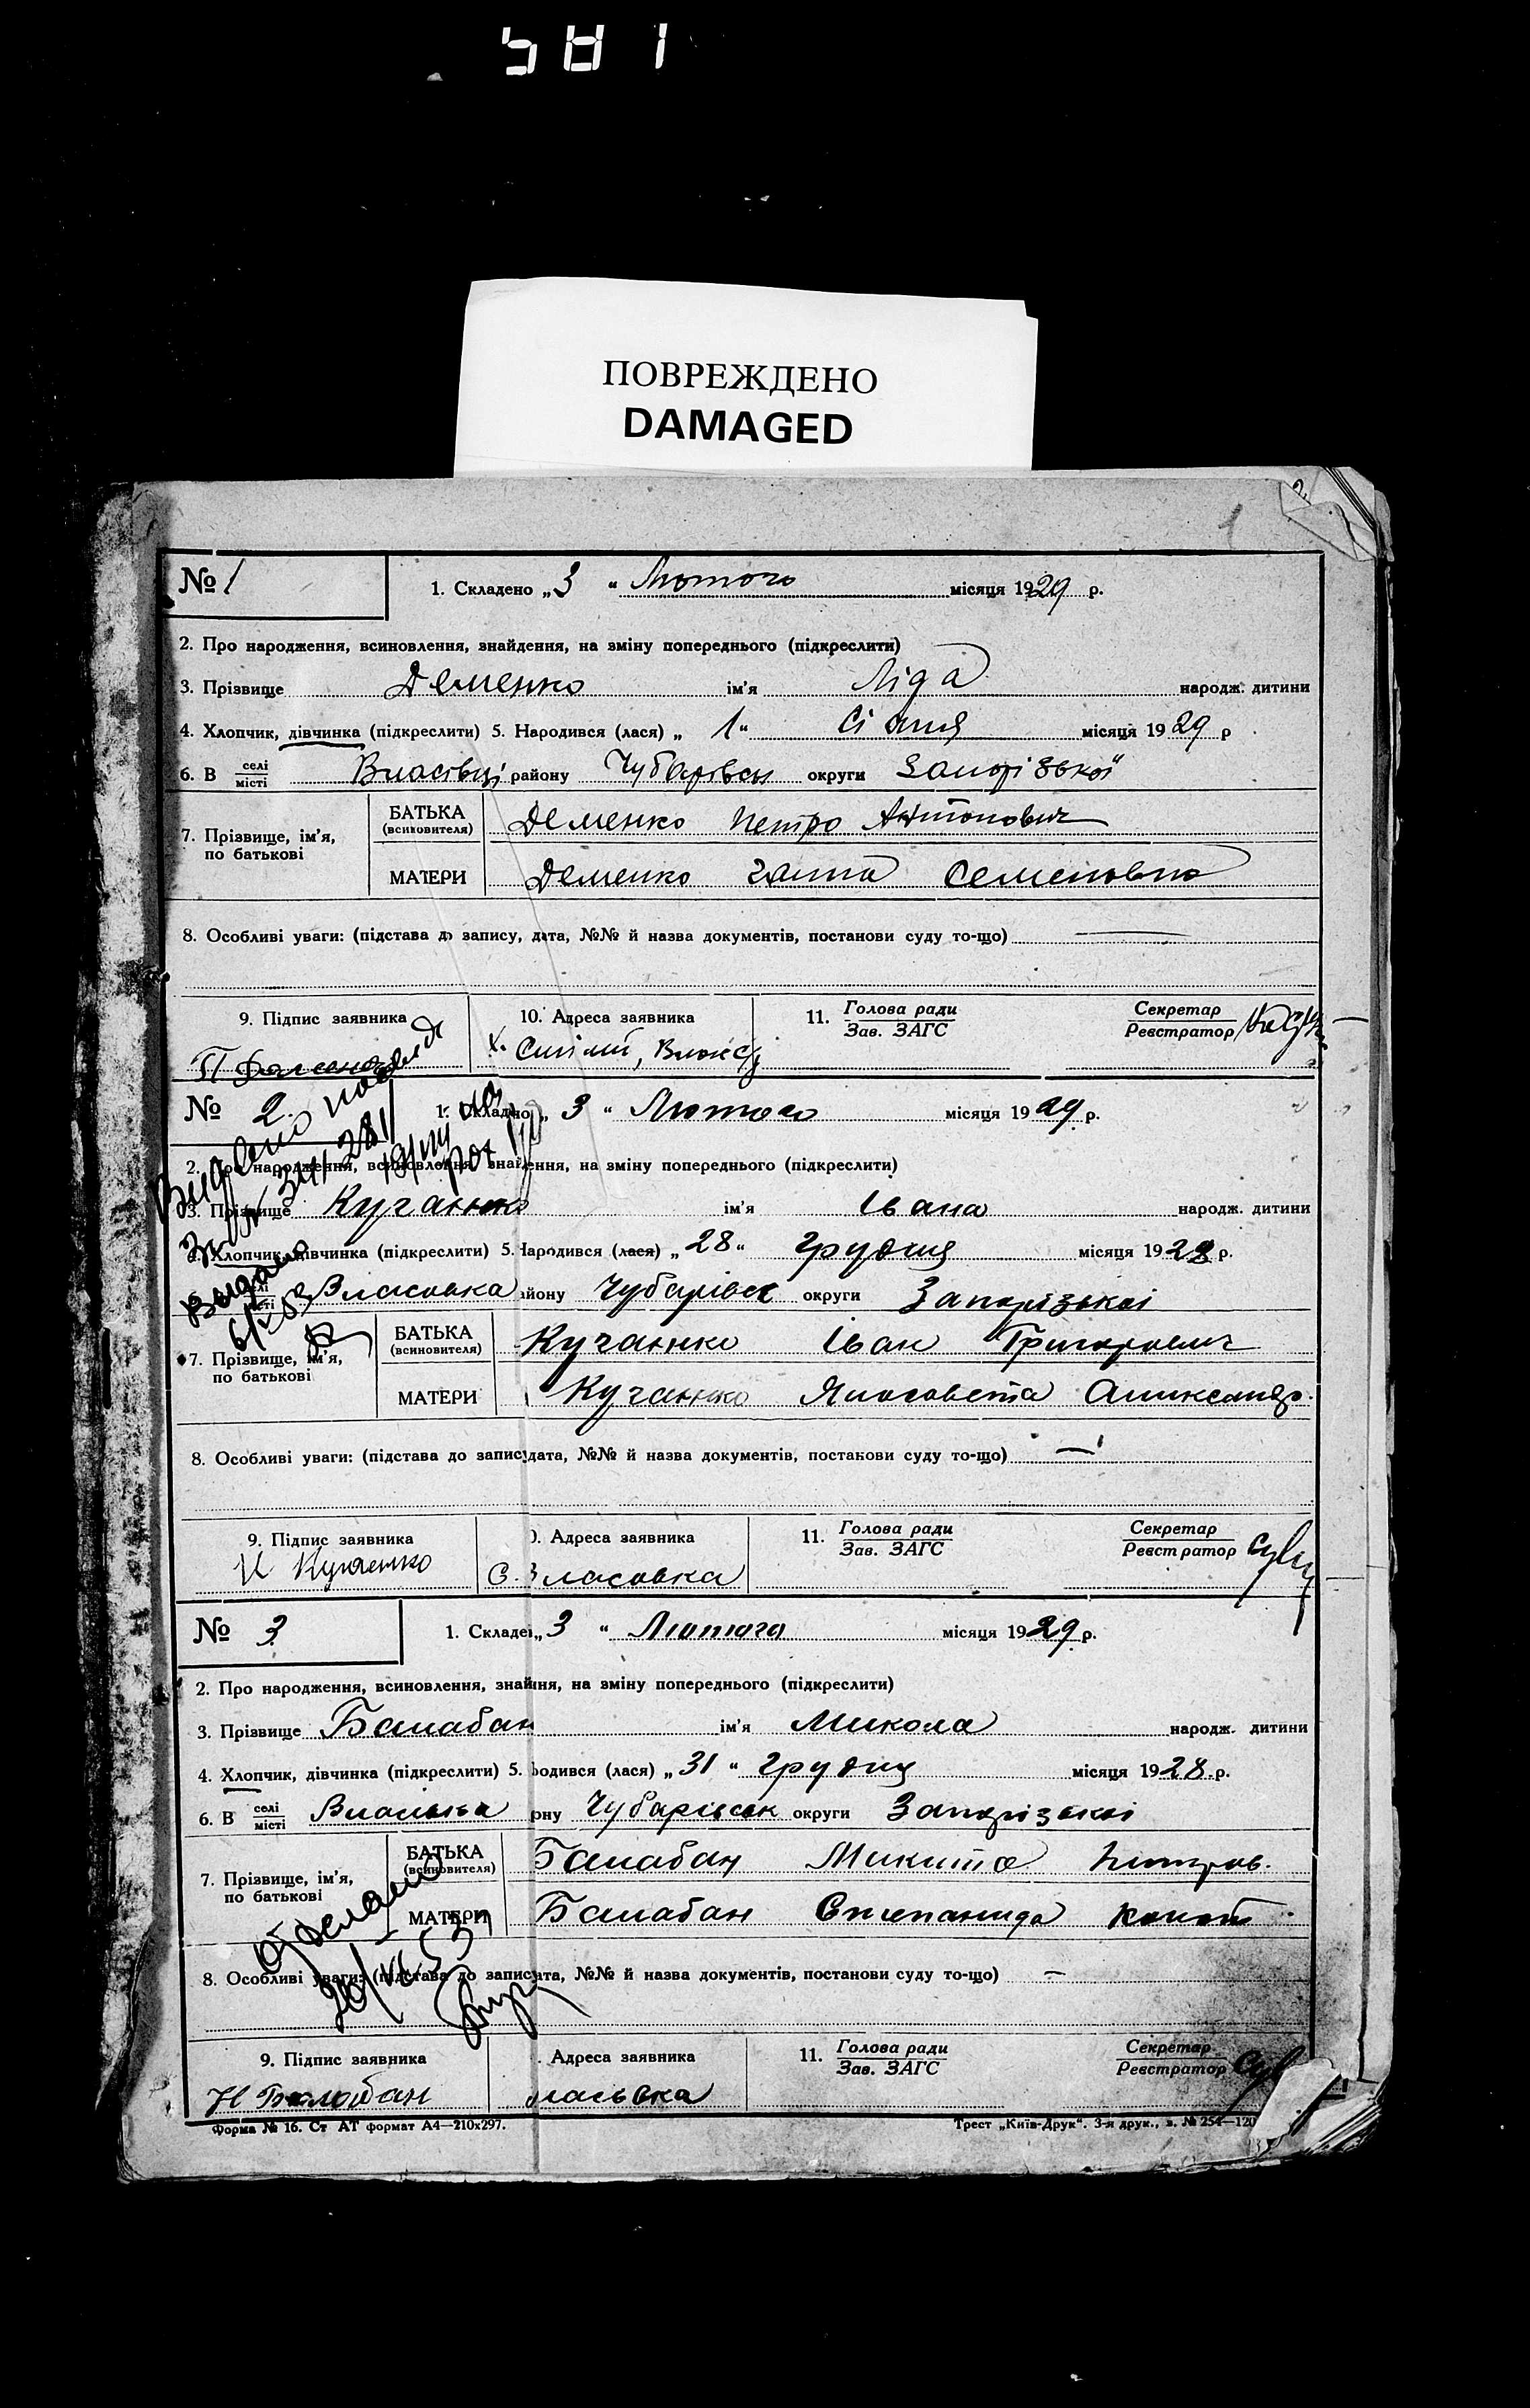 581
ПОВРЕЖДЕНО
DAMAGED
1
№ 1
1. Складено „ 3 “ Лютого місяця 1929 р.
2. Про народження, всиновлення, знайдення, на зміну попереднього (підкреслити)
3. Прізвище Деменко ім'я Ліда народж. дитини
4. Хлопчик, дівчинка (підкреслити) 5. Народився (лася) „ 1 “ Січня місяця 1929 р
6. В селі місті Власівці району Чубарівськ округи Запорізької
7. Прізвище, ім'я, по батькові
БАТЬКА (всиновителя) Деменко Петро Антонович
МАТЕРИ Деменко Ганна Семеновна
8. Особливі уваги: (підстава до запису, дата, №№ й назва документів, постанови суду то-що)
9. Підпис заявника 10. Адреса заявника 11. Голова ради Зав. ЗАГС Секретар Реєстратор
П Деменко х.
№ 2. 1. Складено „ 3 “ Лютого місяця 1929 р.
2. Про народження, всиновлення, знайдення, на зміну попереднього (підкреслити)
3. Прізвище Кучанко ім'я Івана народж. дитини
Хлопчик, дівчинка (підкреслити) 5. Народився (лася) „ 28 “ грудня місяця 1928 р.
Власовка йону Чубарівск округи Запорізькоі
7. Прізвище, ім'я, по батькові
БАТЬКА (всиновителя) Кучанко Іван Григорович
МАТЕРИ Кучанко Ялисовета Александр.
Выдано
8. Особливі уваги: (підстава до запису дата, №№ й назва документів, постанови суду то-що)
9. Підпис заявника 0. Адреса заявника 11. Голова ради Зав. ЗАГС Секретар Реєстратор
И Кучаенко С. Власовка
№ 3. 1. Складе „ 3 “ Лютого місяця 1929 р.
2. Про народження, всиновлення, знайння, на зміну попереднього (підкреслити)
3. Прізвище Балабан ім'я Микола народж. дитини
4. Хлопчик, дівчинка (підкреслити) 5. родився (лася) „ 31 “ грудня місяця 1928 р.
6. В селі місті Власівка ону Чубарівськ округи Запорізькоі
7. Прізвище, ім'я, по батькові
БАТЬКА (всиновителя) Балабан Микита Питров.
МАТЕРИ Балабан Степанида
8. Особливі уваги: (підстава до запис ата, №№ й назва документів, постанови суду то-що)
9. Підпис заявника . Адреса заявника 11. Голова ради Зав. ЗАГС Секретар Реєстратор
Н Балабан ласьвка
Форма № 16. Ст АТ формат А4—210х297.
Трест „Київ-Друк“. 3-я друк., з. № 254—120